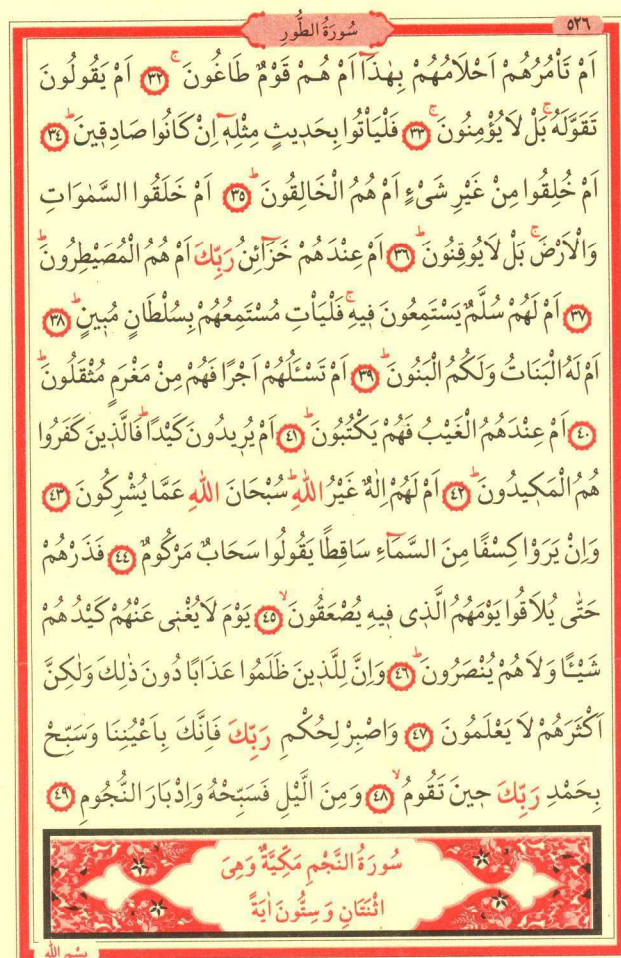 ٥٢٦
سُورَةُ الطُّورِ
اَمْ تَأْمُرُهُمْ اَحْلَامُهُمْ بِهٰذَٓا اَمْ هُمْ قَوْمٌ طَاغُونَۚ ﴿٣٢﴾ اَمْ يَقُولُونَ
تَقَوَّلَهُۚ بَلْ لَا يُؤْمِنُونَۚ ﴿٣٣﴾ فَلْيَأْتُوا بِحَد۪يثٍ مِثْلِه۪ٓ اِنْ كَانُوا صَادِق۪ينَۜ ﴿٣٤﴾
اَمْ خُلِقُوا مِنْ غَيْرِ شَيْءٍ اَمْ هُمُ الْخَالِقُونَۜ ﴿٣٥﴾ اَمْ خَلَقُوا السَّمٰوَاتِ
وَالْاَرْضَۚ بَلْ لَا يُوقِنُونَۜ ﴿٣٦﴾ اَمْ عِنْدَهُمْ خَزَٓائِنُ رَبِّكَ اَمْ هُمُ الْمُصَيْطِرُونَۜ
﴿٣٧﴾ اَمْ لَهُمْ سُلَّمٌ يَسْتَمِعُونَ ف۪يهِۚ فَلْيَأْتِ مُسْتَمِعُهُمْ بِسُلْطَانٍ مُب۪ينٍۜ ﴿٣٨﴾
اَمْ لَهُ الْبَنَاتُ وَلَكُمُ الْبَنُونَۜ ﴿٣٩﴾ اَمْ تَسْـَٔلُهُمْ اَجْرًا فَهُمْ مِنْ مَغْرَمٍ مُثْقَلُونَۜ
﴿٤٠﴾ اَمْ عِنْدَهُمُ الْغَيْبُ فَهُمْ يَكْتُبُونَۜ ﴿٤١﴾ اَمْ يُر۪يدُونَ كَيْدًاۜ فَالَّذ۪ينَ كَفَرُوا
هُمُ الْمَك۪يدُونَۜ ﴿٤٢﴾ اَمْ لَهُمْ اِلٰهٌ غَيْرُ اللّٰهِۜ سُبْحَانَ اللّٰهِ عَمَّا يُشْرِكُونَ ﴿٤٣﴾
وَاِنْ يَرَوْا كِسْفًا مِنَ السَّمَٓاءِ سَاقِطًا يَقُولُوا سَحَابٌ مَرْكُومٌ ﴿٤٤﴾ فَذَرْهُمْ
حَتّٰى يُلَاقُوا يَوْمَهُمُ الَّذ۪ي ف۪يهِ يُصْعَقُونَۙ ﴿٤٥﴾ يَوْمَ لَا يُغْن۪ي عَنْهُمْ كَيْدُهُمْ
شَيْـًٔا وَلَا هُمْ يُنْصَرُونَۜ ﴿٤٦﴾ وَاِنَّ لِلَّذ۪ينَ ظَلَمُوا عَذَابًا دُونَ ذٰلِكَ وَلٰكِنَّ
اَكْثَرَهُمْ لَا يَعْلَمُونَ ﴿٤٧﴾ وَاصْبِرْ لِحُكْمِ رَبِّكَ فَاِنَّكَ بِاَعْيُنِنَا وَسَبِّحْ
بِحَمْدِ رَبِّكَ ح۪ينَ تَقُومُۙ ﴿٤٨﴾ وَمِنَ الَّيْلِ فَسَبِّحْهُ وَاِدْبَارَ النُّجُومِ ﴿٤٩﴾
سُورَةُ النَّجْمِ مَكِّيَّةٌ وَهِىَ
اثْنَتَانِ وَسِتُّونَ اٰيَةً
بِسْمِ اللّٰهِ